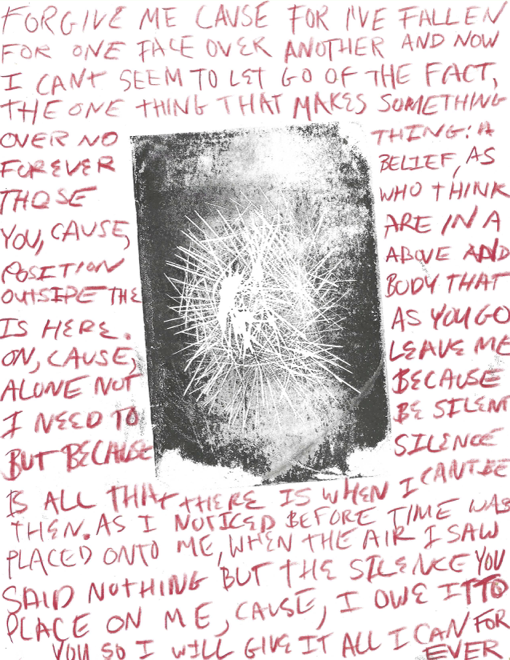 FORGIVE ME CAUSE FOR I'VE FALLEN
FOR ONE FACE OVER ANOTHER AND NOW
I CANT SEEM TO LET GO OF THE FACT,
THE ONE THING THAT MAKES SOMETHING
OVER NO THING: A
FOREVER BELIEF, AS
THOSE WHO THINK
YOU, CAUSE, ARE IN A
POSITION ABOVE AND
OUTSIDE THE BODY THAT
IS HERE. AS YOU GO
ON, CAUSE, LEAVE ME
ALONE NOT BECAUSE
I NEED TO BE SILENT
BUT BECAUSE SILENCE
IS ALL THAT THERE IS WHEN I CANT BE
THEN. AS I NOTICED BEFORE TIME WAS
PLACED ONTO ME, WHEN THE AIR I SAW
SAID NOTHING BUT THE SILENCE YOU
PLACE ON ME, CAUSE, I OWE IT TO
YOU SO I WILL GIVE IT ALL I CAN FOR
EVER.